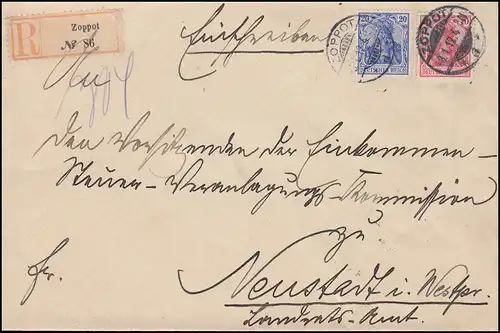 R
Zoppot
№ 86
Einschreiben
ZOPPOT
20 20
DEUTSCHES REICH
ZOPPOT
An
den Vorsitzenden der Einkommen-
Steuer-Veranlagungs-Kommission
zu
Fr. Neustadt i. Westpr.
Landrats-Amt.